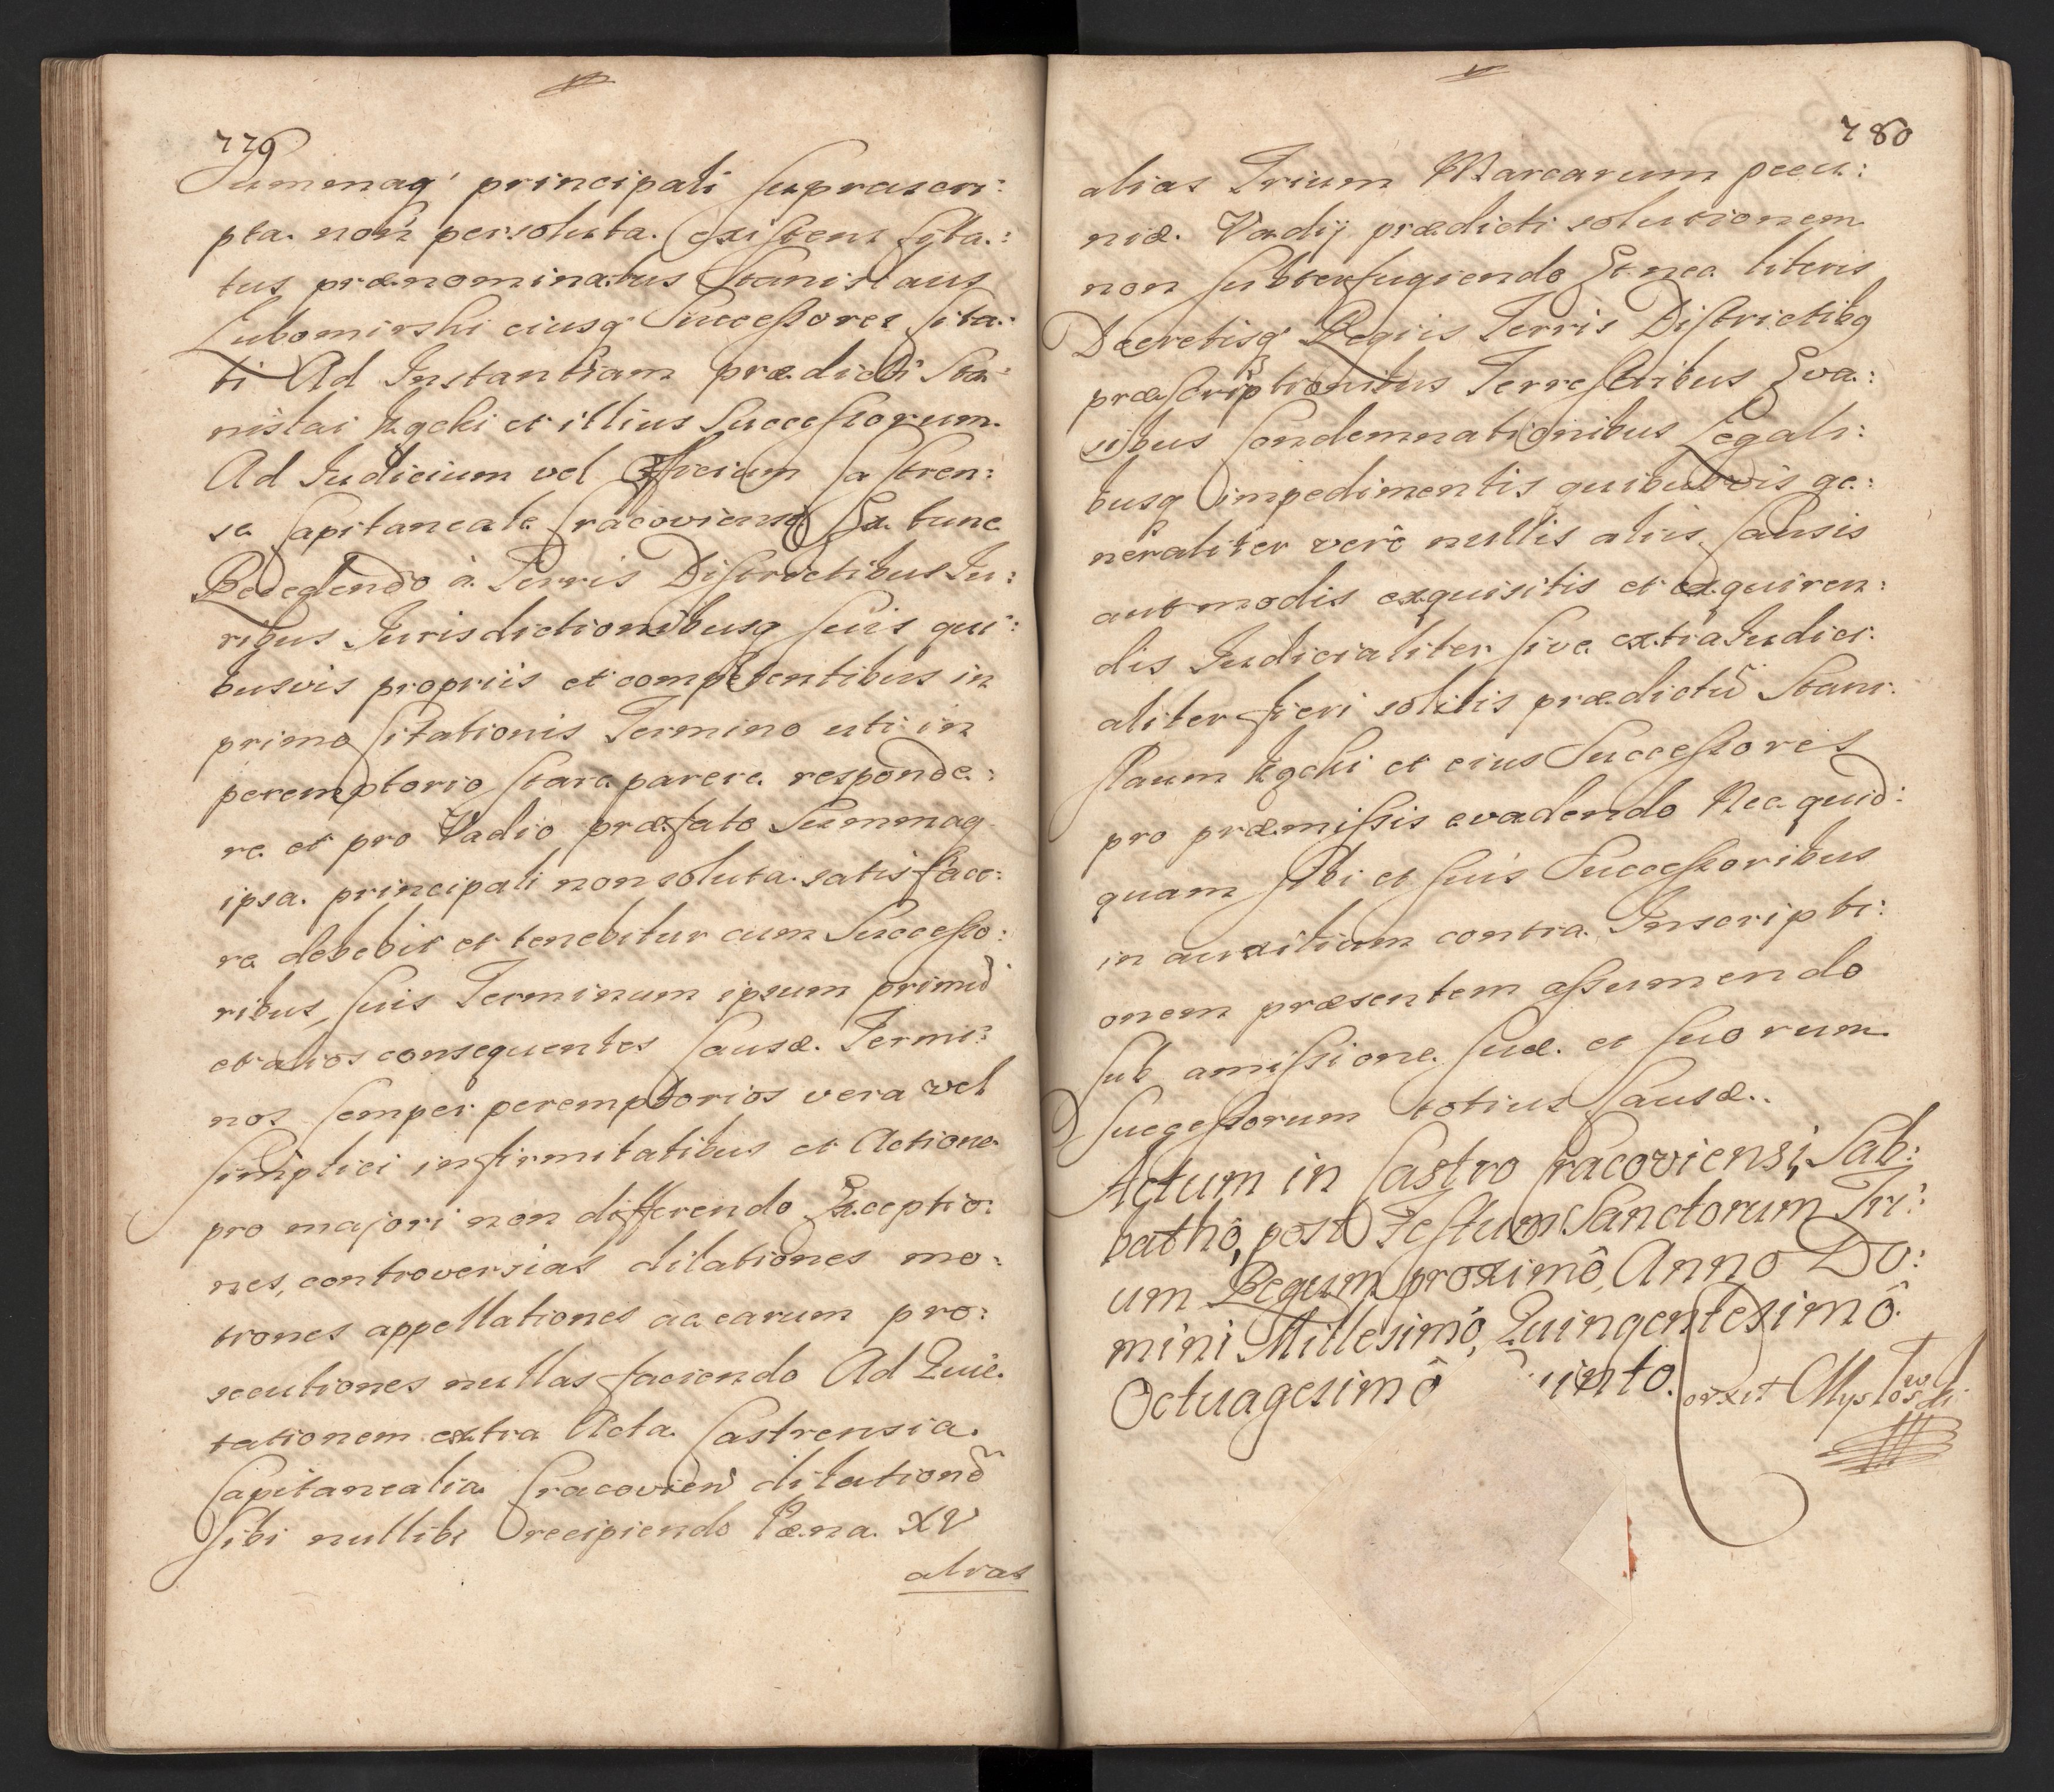 779
Summaq' principali suprascri:
pta. non persoluta. existens Cita:
tus prænominatus Stanislaus
Lubomirski eiusq' Successores Cita:
ti Ad Instantiam prædicti Sta:
nislai et illius Successorum.
Ad Judicium vel Officium Castren:
se Capitaneale Cracoviense Ex tunc
Recedendo à Terris Districtibus Ju:
ribus Jurisdictionibusq suis qui:
busvis propriis et competentibus in
primo Citationis Termino uti in
peremptorio stare parere responde:
re et pro Vadio præfato Summaq
ipsa. principali non soluta. satisface:
re debebit et tenebitur cum Successo:
ribus suis Terminum ipsum primũ
et alios consequentes Causæ. Termi:
nos semper peremptorios vera vel
simplici infirmitatibus et Actione
pro majori non differendo Exceptio:
nes, controversias dilationes mo:
tiones appellationes ac earum pro:
secutiones nullas faciendo Ad Quie.
tationem extra Acta. Castrensia.
Capitanealia Cracovien̄ dilationẽ
sibi nullibi recipiendo Pæna. XV
alias
780
alias Trium Marcarum pecu:
niæ. Vadij prædicti solutionem
non subterfugiendo Et nec literis
Decretisq' Regiis Terris Districtibq
præscriptionibus Terrestribus Eva:
sibus Condemnationibus Legali:
busq impedimentis quibusvis ge:
neraliter verô nullis aliis Causis
aut modis exquisitis et exquiren:
dis Judicialiter sive extraJudici:
aliter fieri solitis prædictũ Stani:
slaum et eius Successores
pro præmissis evadendo Nec quid:
quam sibi et suis Successoribus
in auxilium contra Inscripti:
onem præsentem assumendo
sub amissione suæ. et suorum.
Successorum totius Causæ..
Actum in Castro Cracoviensi, Sab:
bathô, post Festum Sanctorum Tri:
um Regum proximô, Anno Do:
mini Millesimô, Quingentesimô
Octuagesimô uinto.